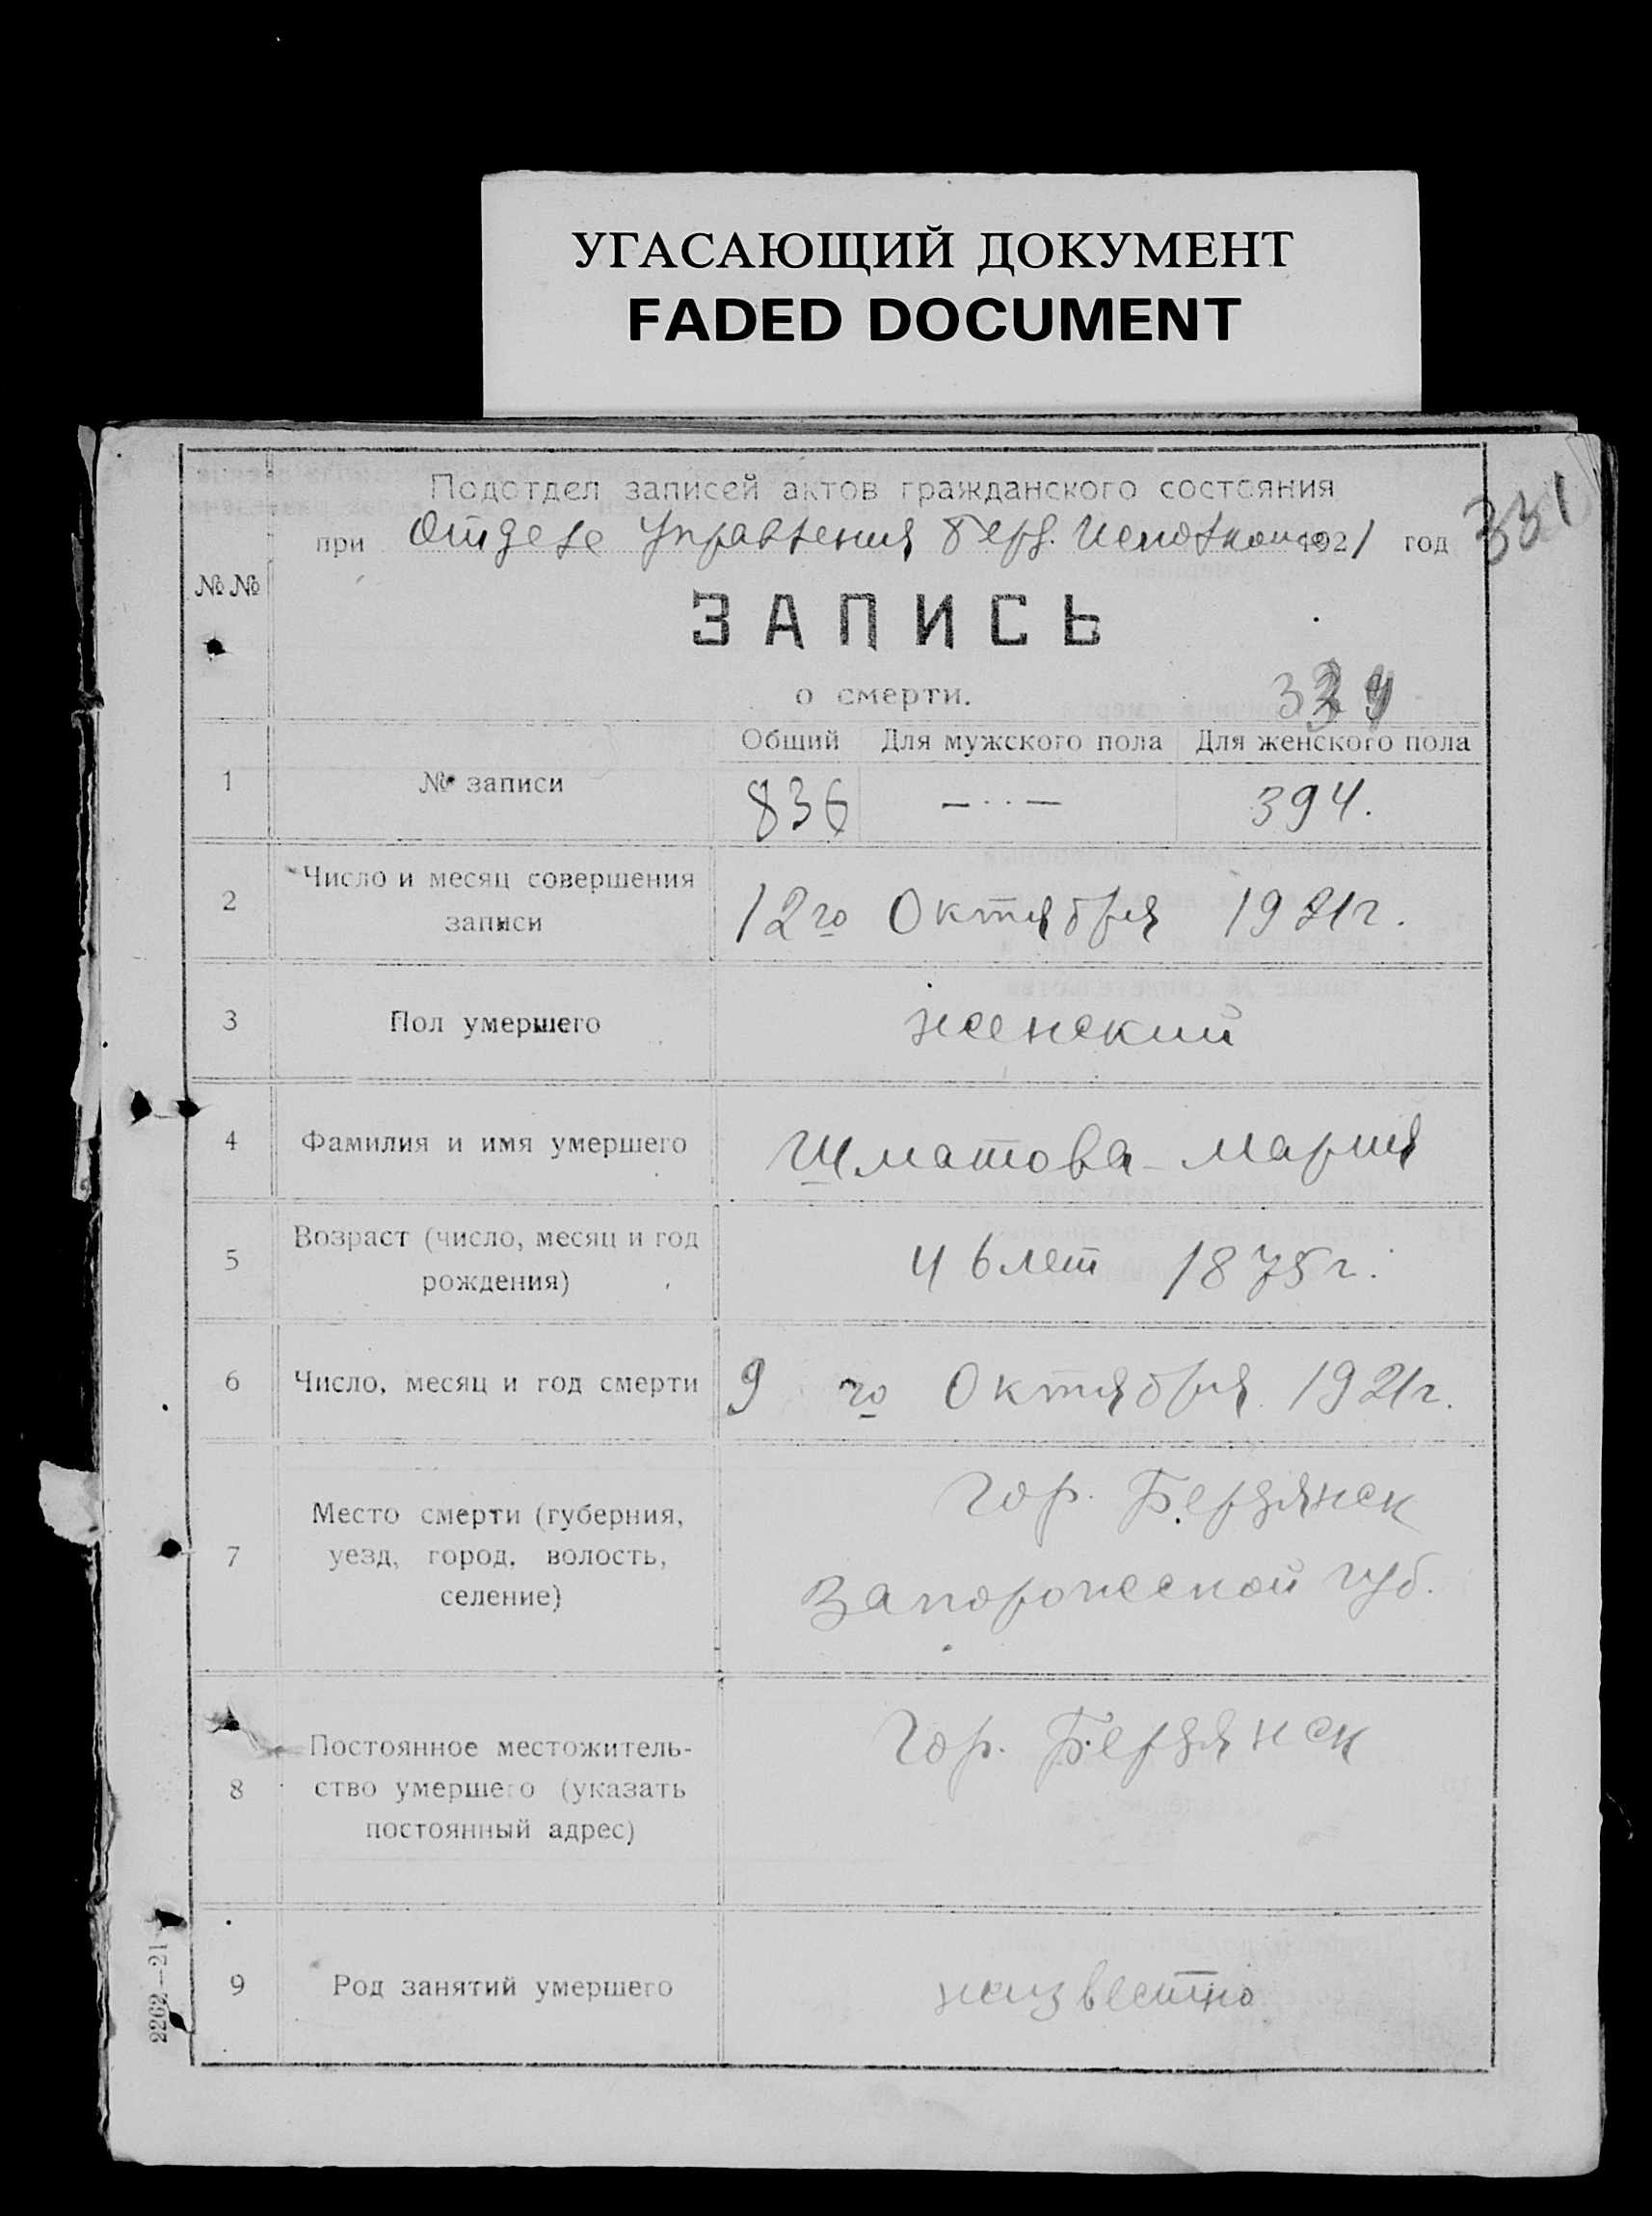 УГАСАЮЩИЙ ДОКУМЕНТ
FADED DOCUMENT
Подотдел записей актов гражданского состояния
при Отделе Управления Берд. Исполкома 1921 год
331
№№
ЗАПИСЬ
о смерти.
Общий Для мужского пола Для женского пола
1 № записи 836 —··— 394.
2 Число и месяц совершения
записи 12го Октября 1921г.
3 Пол умершего женский
4 Фамилия и имя умершего Шматова Мария
5 Возраст (число, месяц и год
рождения) 46 лет 1875г.
6 Число, месяц и год смерти 9 го Октября 1921г.
7 Место смерти (губерния,
уезд, город, волость,
селение)
гор. Бердянск
Запорожской губ.
8 Постоянное местожитель-
ство умершего (указать
постоянный адрес)
гор. Бердянск
9 Род занятий умершего неизвестно
2262—21